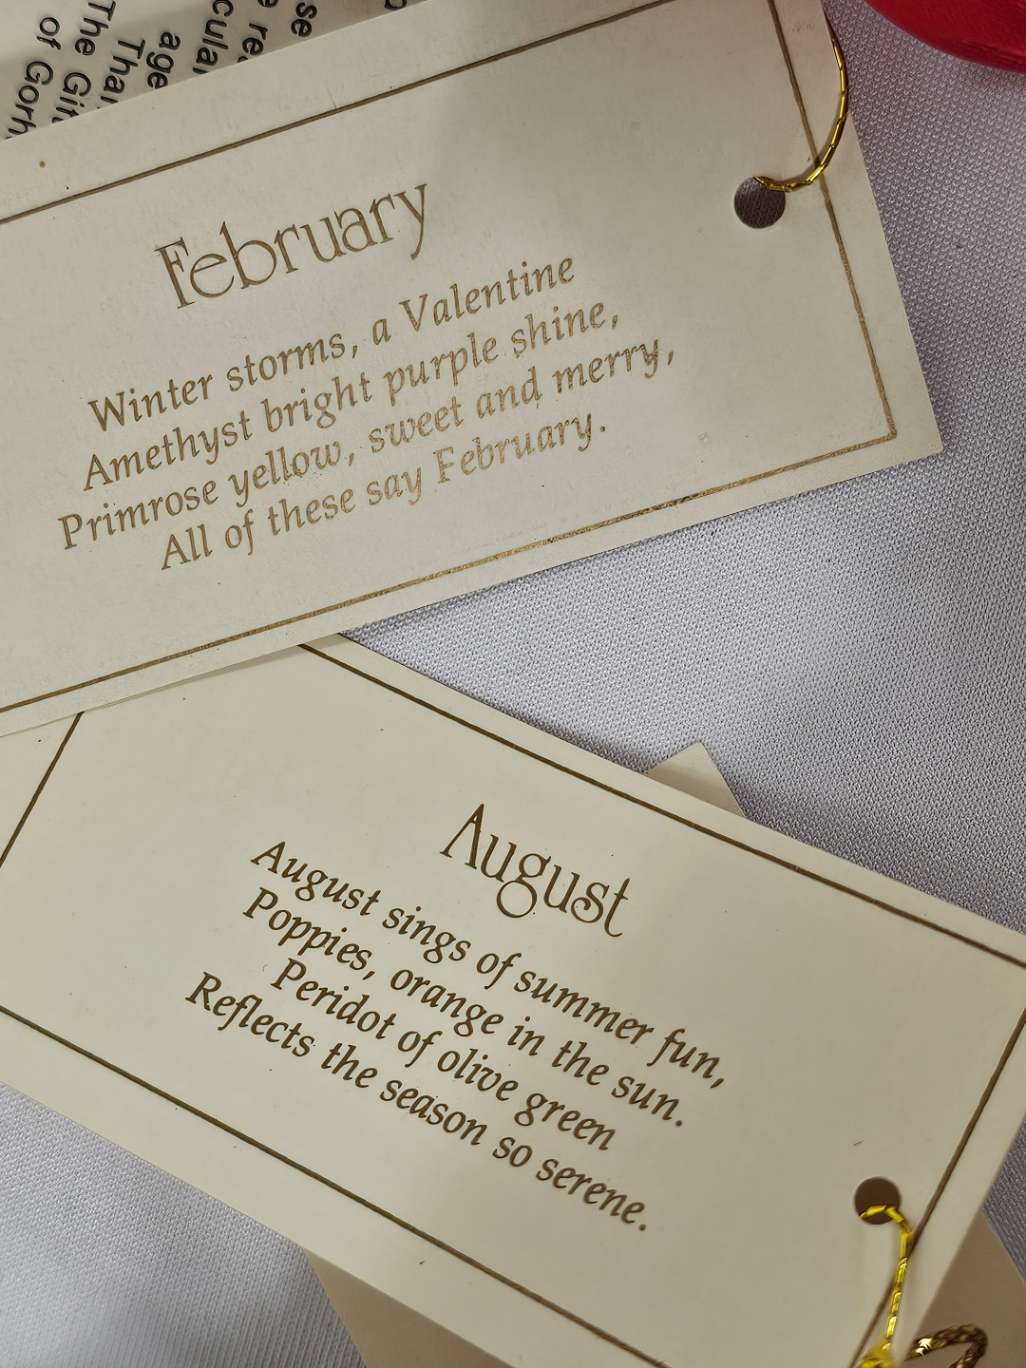 The Gif
of Gorh
age
February
Winter storms, a Valentine
Amethyst bright purple shine,
Primrose yellow, sweet and merry,
All of these say February.
August
August sings of summer fun,
Poppies, orange in the sun.
Peridot of olive green
Reflects the season so serene.